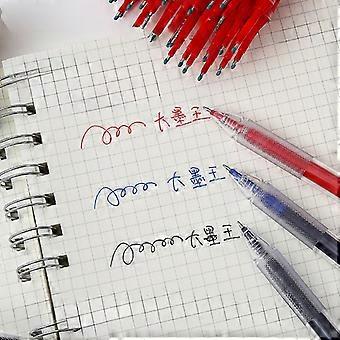 大墨王
大墨王
大墨王